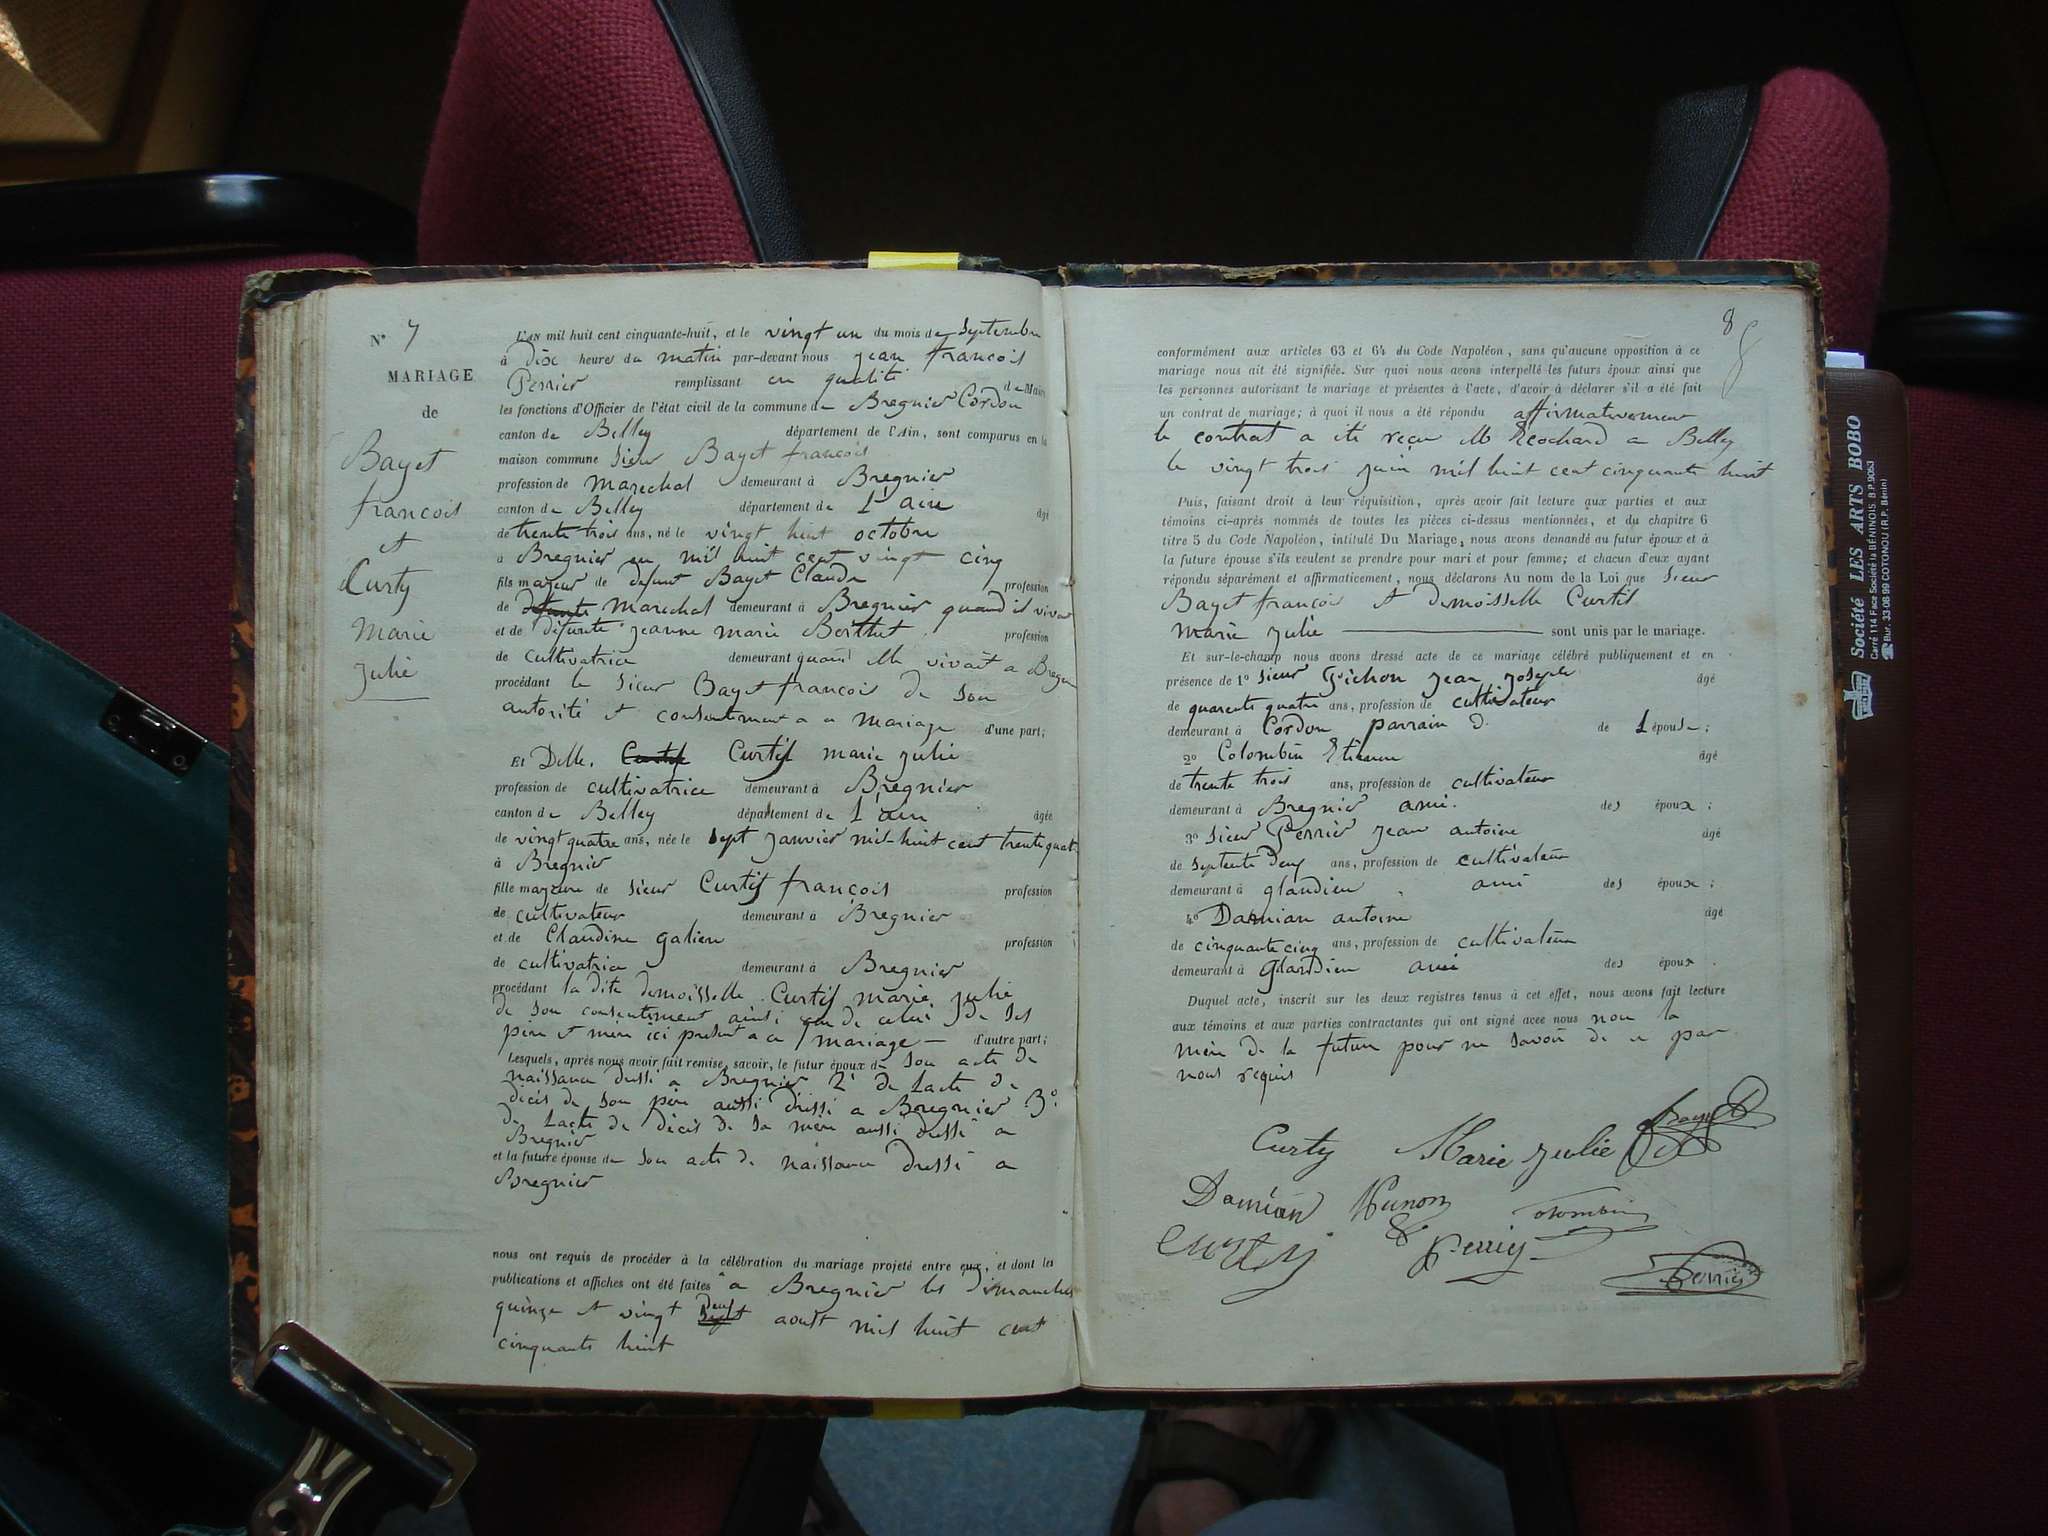 N° 7
MARIAGE
de
Bayet
francois
et
Curty
Marie
Julie
L'AN mil huit cent cinquante-huit, et le vingt un du mois de Septembre
à dix heure du matin par-devant nous Jean francois
Perrier remplissant en qualité de Maire
les fonctions d'Officier de l'état civil de la commune de Bregnier Cordon
canton de Belley département de l'Ain, sont comparus en la
maison commune Sieur Bayet francois
profession de Marechal demeurant à Bregnier
canton de Belley département de L'ain âgé
de trente trois ans, né le vingt huit octobre
à Bregnier en mil huit cent vingt cinq
fils majeur de défunt Bayet Claude profession
de Marechal demeurant à Bregnier quand il vivait
et de défunte Jeanne marie Berthet profession
de cultivatrice demeurant quand elle vivait a Bregnier
procédant le Sieur Bayet francois de son
autorité et consentement a ce mariage d'une part;
Et Delle. Curtil Curtil marie julie
profession de cultivatrice demeurant à Bregnier
canton de Belley département de L'ain âgée
de vingt quatre ans, née le sept Janvier mil huit cent trente quatre
à Bregnier
fille mageure de Sieur Curtil francois profession
de cultivateur demeurant à Bregnier
et de Claudine galien profession
de cultivatrice demeurant à Bregnier
procédant la dite demoisselle Curtil marie julie
de son consentement ainsi que de celui de ses
père et mère ici présent a ce mariage — d'autre part;
Lesquels, après nous avoir fait remise, savoir, le futur époux de son acte de
naissance dressé a Bregnier 2° de Lacte de
décès de son père aussi dressé a Bregnier 3°
de Lacte de décès de sa mère aussi dressé a
Bregnier
et la future épouse de son acte de naissance dressé a
Bregnier
nous ont requis de procéder à la célébration du mariage projeté entre eux, et dont les
publications et affiches ont été faites a Bregnier les dimanches
quinze et vingt deux aoust mil huit cent
cinquante huit
8
conformément aux articles 63 et 64 du Code Napoléon, sans qu'aucune opposition à ce
mariage nous ait été signifiée. Sur quoi nous avons interpellé les futurs époux ainsi que
les personnes autorisant le mariage et présentes à l'acte, d'avoir à déclarer s'il a été fait
un contrat de mariage; à quoi il nous a été répondu affirmativement
le contrat a été reçu M a Belley
le vingt trois juin mil huit cent cinquante huit
Puis, faisant droit à leur réquisition, après avoir fait lecture aux parties et aux
témoins ci-après nommés de toutes les pièces ci-dessus mentionnées, et du chapitre 6
titre 5 du Code Napoléon, intitulé Du Mariage, nous avons demandé au futur époux et à
la future épouse s'ils veulent se prendre pour mari et pour femme; et chacun d'eux ayant
répondu séparément et affirmativement, nous déclarons Au nom de la Loi que Sieur
Bayet francois et demoisselle Curtil
marie julie sont unis par le mariage.
Et sur-le-champ nous avons dressé acte de ce mariage célébré publiquement et en
présence de 1° Sieur Guichon Jean joseph âgé
de quarente quatre ans, profession de cultivateur
demeurant à Cordon parrain de L'épouse;
2° Colombin Etienne âgé
de trente trois ans, profession de cultivateur
demeurant à Bregnier ami des époux;
3° Sieur Perrier Jean antoine âgé
de septente deux ans, profession de cultivateur
demeurant à glandieu ami des époux;
4° Damian antoine âgé
de cinquante cinq ans, profession de cultivateur
demeurant à Glandieu ami des époux.
Duquel acte, inscrit sur les deux registres tenus à cet effet, nous avons fait lecture
aux témoins et aux parties contractantes qui ont signé avec nous non la
mère de la future pour ne savoir de ce par
nous requis
Curty Marie Julie Bayet
Damian Colombin
Perrier
Perrier
Société LES ARTS BOBO
Carré 114 Face Société la BÉNINOISE B.P.9053
Bur. 33-08-99 COTONOU (R.P. Bénin)